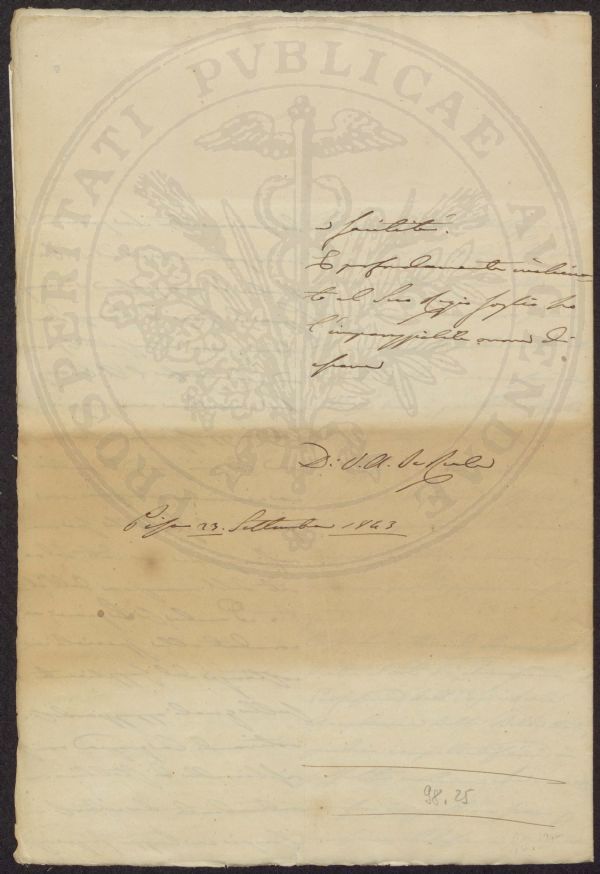 PROSPERITATI PVBLICAE AVGENDAE
e facilità.
E profondamente inchina-
to al Suo Regio Soglio ho
l'impareggiabile onore di
essere
Di V. A. I. e Reale
Pisa 23. Settembre 1843
98.25